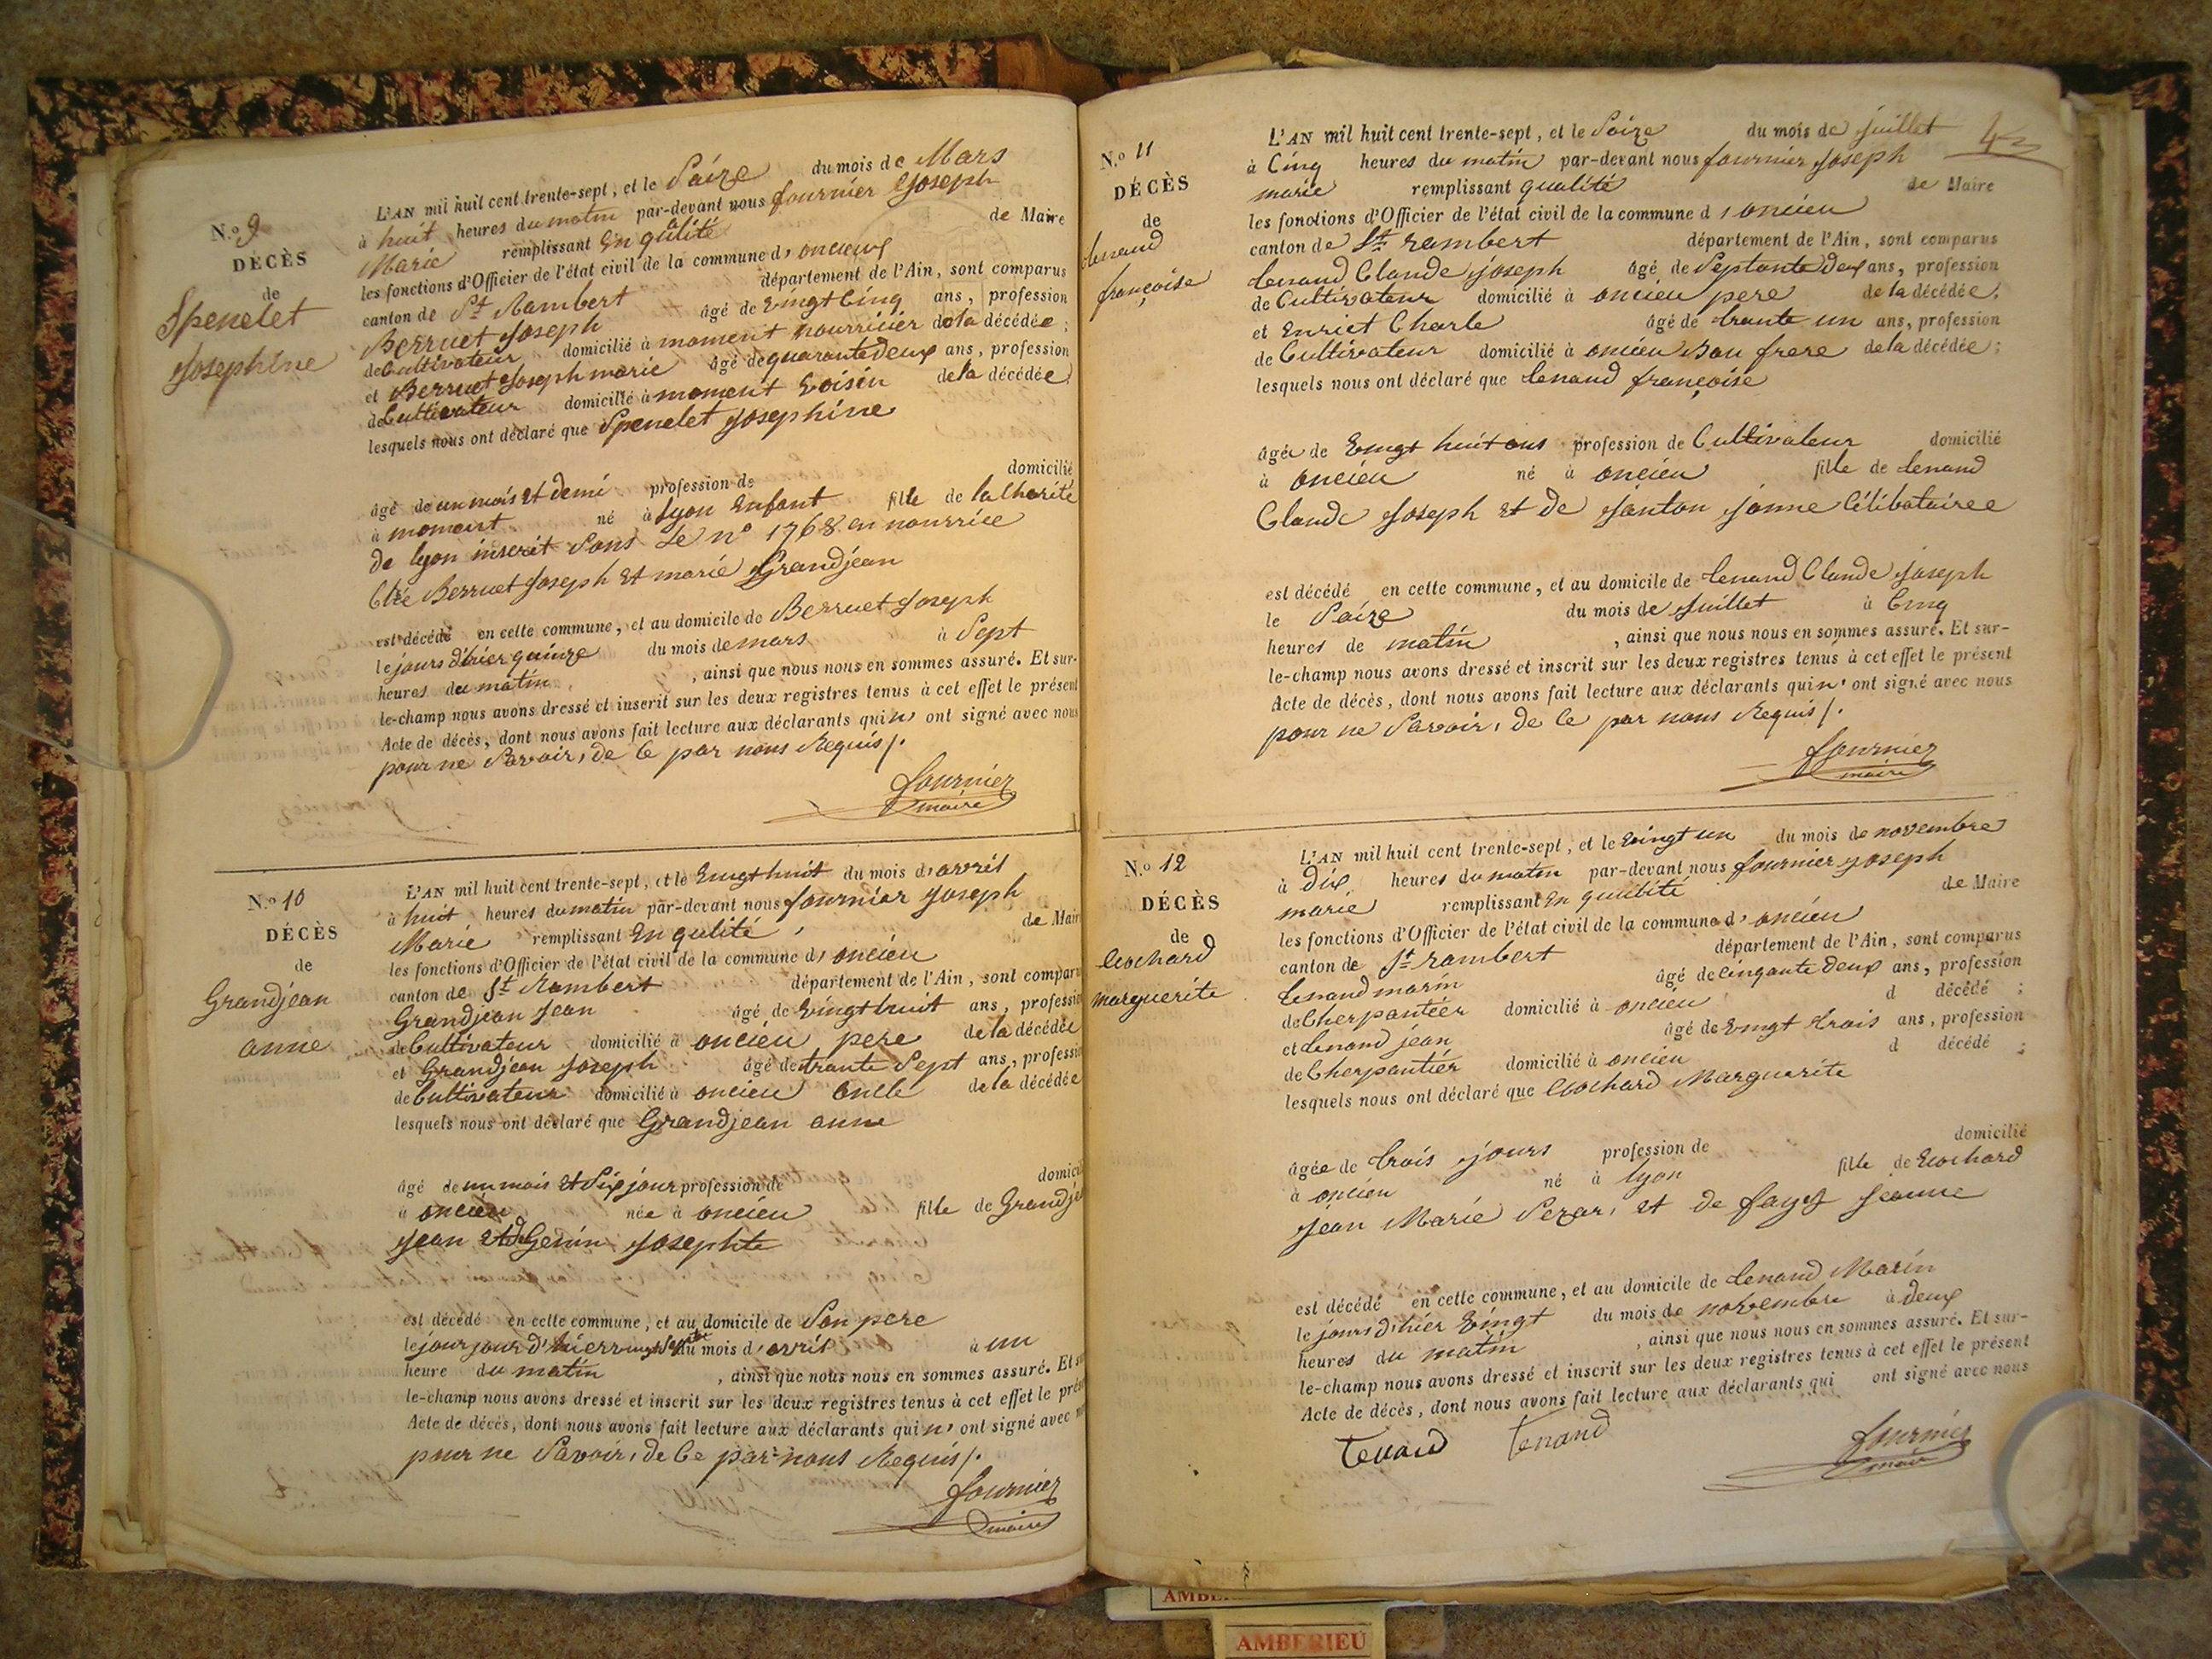 N.o 9
DÉCÈS
de
Spenelet
Josephine
L'AN mil huit cent trente-sept, et le Saize du mois de Mars
à huit heures du matin par-devant nous fournier Joseph
Marie remplissant En qulité de Maire
les fonctions d'Officier de l'état civil de la commune d' oncieux
canton de St Rambert département de l'Ain, sont comparus
Berruet Joseph âgé de Vingt Cinq ans, profession
de Cultivateur domicilié à moment nourricier de la décédée;
et Berruet Joseph marie âgé de quarante deux ans, profession
de Cultivateur domicilié à moment Voisin de la décédée;
lesquels nous ont déclaré que Spenelet Josephine
âgé de un mois et demi profession de domicilié
à moment né à Lyon Enfant fille de la Charité
de lyon inscrit Sous Le n° 1768 en nourrice
Chée Berruet Joseph et marie Grandjean
est décédé en cette commune, et au domicile de Berruet Joseph
le jours d'hier quinze du mois de mars à Sept
heures du matin, ainsi que nous nous en sommes assuré. Et sur-
le-champ nous avons dressé et inscrit sur les deux registres tenus à cet effet le présent
Acte de décès, dont nous avons fait lecture aux déclarants qui n' ont signé avec nous
pour ne Savoir, de Ce par nous Requis /.
fournier
maire
N.o 10
DÉCÈS
de
Grandjean
anne
L'AN mil huit cent trente-sept, et le Vingt huit du mois d' avril
à huit heures du matin par-devant nous fournier Joseph
Marie remplissant En qulité, de Mair
les fonctions d'Officier de l'état civil de la commune d' oncieu
canton de St Rambert département de l'Ain, sont comparu
Grandjean Jean âgé de Vingt huit ans, professio
de Cultivateur domicilié à oncieu pere de la décédée
et Grandjean Joseph âgé de trante Sept ans, professio
de Cultivateur domicilié à oncieu oncle de la décédée
lesquels nous ont déclaré que Grandjean anne
âgé de un mois et Six jour profession de domicil
à oncieu née à oncieu fille de Grandje
Jean et de Genin Josephte
est décédé en cette commune, et au domicile de Son pere
le jour jour d'hier vingt Sept du mois d' avril à un
heure du matin, ainsi que nous nous en sommes assuré. Et su
le-champ nous avons dressé et inscrit sur les deux registres tenus à cet effet le prése
Acte de décès, dont nous avons fait lecture aux déclarants qui n' ont signé avec no
pour ne Savoir, de Ce par nous Requis /.
fournier
maire
43
N.o 11
DÉCÈS
de
tenand
françoise
L'AN mil huit cent trente-sept, et le Saize du mois de Juillet
à Cinq heures du matin par-devant nous fournier Joseph
marie remplissant qualité de Maire
les fonctions d'Officier de l'état civil de la commune d' oncieu
canton de St rambert département de l'Ain, sont comparus
tenand Claude Joseph âgé de Septante deux ans, profession
de Cultivateur domicilié à oncieu pere de la décédée;
et Enriet Charle âgé de trante un ans, profession
de Cultivateur domicilié à oncieu Bau frere de la décédée;
lesquels nous ont déclaré que tenand françoise
âgée de Vingt huit ans profession de Cultivateur domicilié
à oncieu né à oncieu fille de tenand
Claude Joseph et de Janton Janne Célibatairee
est décédé en cette commune, et au domicile de tenand Claude Joseph
le Saize du mois de Juillet à Cinq
heures de matin, ainsi que nous nous en sommes assuré. Et sur-
le-champ nous avons dressé et inscrit sur les deux registres tenus à cet effet le présent
Acte de décès, dont nous avons fait lecture aux déclarants qui n' ont signé avec nous
pour ne Savoir, de Ce par nous Requis /.
fournier
maire
N.o 12
DÉCÈS
de
Cochard
marguerite
L'AN mil huit cent trente-sept, et le Vingt un du mois de novembre
à dix heures du matin par-devant nous fournier Joseph
marie remplissant En qulité de Maire
les fonctions d'Officier de l'état civil de la commune d' oncieu
canton de St rambert département de l'Ain, sont comparus
tenand marin âgé de cinqante deux ans, profession
de Cherpantier domicilié à oncieu d décédé;
et tenand jean âgé de Vingt trois ans, profession
de Cherpantier domicilié à oncieu d décédé;
lesquels nous ont déclaré que Cochard Marguerite
âgée de trois jours profession de domicilié
à oncieu né à lyon fille de Cochard
Jean Marie Cezar, et de fayz Jeanne
est décédé en cette commune, et au domicile de tenand Marin
le jours d'hier Vingt du mois de novembre à deux
heures du matin, ainsi que nous nous en sommes assuré. Et sur-
le-champ nous avons dressé et inscrit sur les deux registres tenus à cet effet le présent
Acte de décès, dont nous avons fait lecture aux déclarants qui ont signé avec nous
Tenand Tenand fournier
maire
AMBERIEU